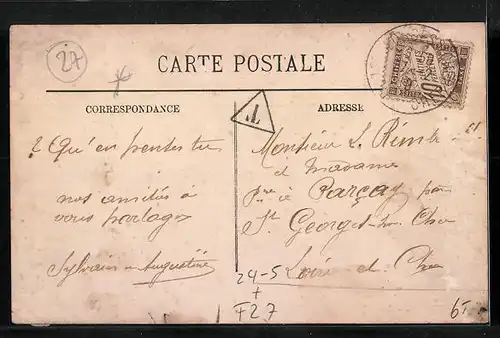 27
CARTE POSTALE
CORRESPONDANCE
ADRESSE
T
? Qu'en penses tu
nos amitiés à
vous partager
Sylvain et Augustine
Monsieur L.
et Madame
à Parçay par
St Georges sur Cher
Loir et Cher
24-5
+
F27
10
CHIFFRE